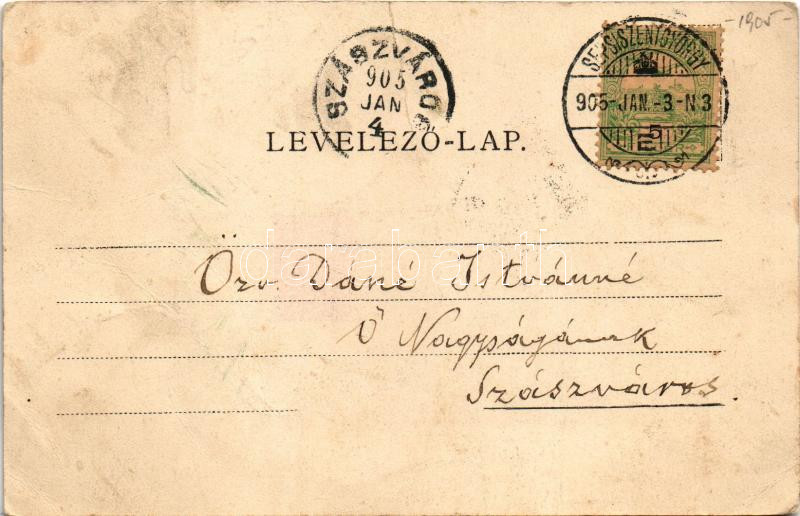 -1905-
SZÁSZVÁROS
905
JAN
4
SEPSISZENTGYÖRGY
905-JAN.-3-N3
5
LEVELEZŐ-LAP.
Özv. Dané Istvánné
Ő Nagyságának
Szászváros.
darabanth